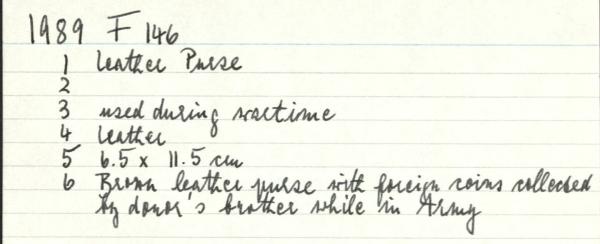 1989 F 146
1 Leather Purse
2
3 used during wartime
4 Leather
5 6.5 x 11.5 cm
6 Brown leather purse with foreign coins collected
by donor's brother while in Army